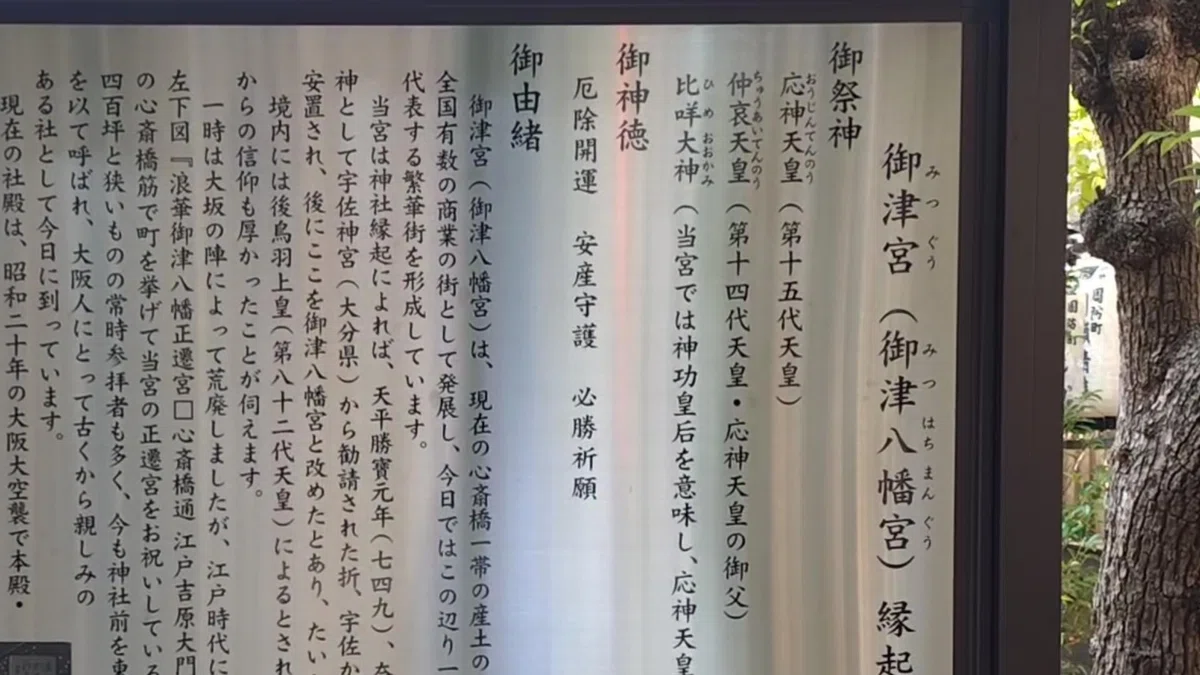 御津宮（御津八幡宮）縁起
みつぐう
みつはちまんぐう
御祭神
応神天皇（第十五代天皇）
おうじんてんのう
仲哀天皇（第十四代天皇・応神天皇の御父）
ちゅうあいてんのう
比咩大神（当宮では神功皇后を意味し、応神天皇
ひめおおかみ
御神徳
厄除開運　安産守護　必勝祈願
御由緒
御津宮（御津八幡宮）は、現在の心斎橋一帯の産土の
全国有数の商業の街として発展し、今日ではこの辺り一
代表する繁華街を形成しています。
当宮は神社縁起によれば、天平勝寶元年（七四九）、奈
神として宇佐神宮（大分県）から勧請された折、宇佐か
安置され、後にここを御津八幡宮と改めたとあり、たい
境内には後鳥羽上皇（第八十二代天皇）によるとされ
からの信仰も厚かったことが伺えます。
一時は大坂の陣によって荒廃しましたが、江戸時代に
左下図『浪華御津八幡正遷宮□心斎橋通 江戸吉原大門
の心斎橋筋で町を挙げて当宮の正遷宮をお祝いしている
四百坪と狭いものの常時参拝者も多く、今も神社前を東
を以て呼ばれ、大阪人にとって古くから親しみの
ある社として今日に到っています。
現在の社殿は、昭和二十年の大阪大空襲で本殿・